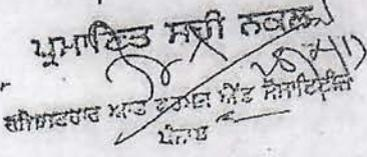 ਪ੍ਰਮਾਣਿਤ ਸਹੀ ਨਕਲ
ਰਜਿਸਟਰਾਰ ਆਫ ਫਰਮਜ਼ ਐਂਡ ਸੋਸਾਇਟੀਜ਼
ਪੰਜਾਬ